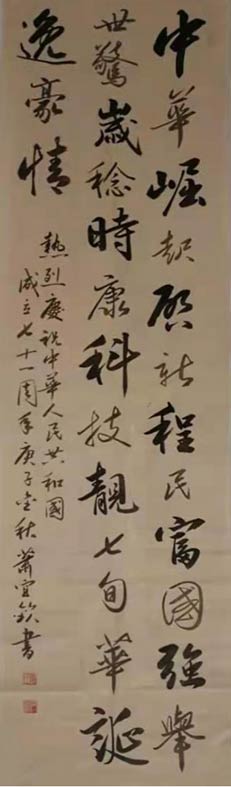 中華崛起啓新程民富國強舉
世驚歲稔時康科技靚七旬華誕
逸豪情
熱烈慶祝中華人民共和國
成立七十一周年庚子金秋蕭宜
書